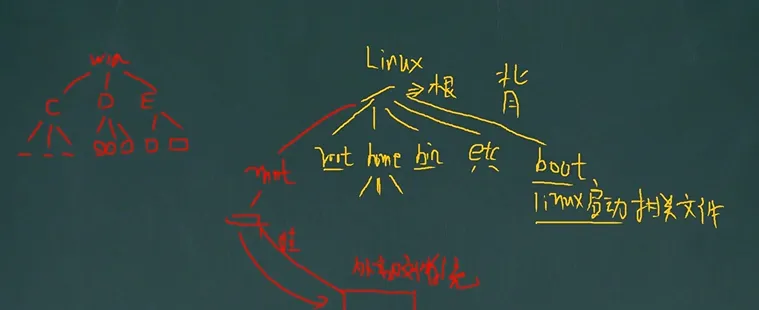 win
C D E
Linux
/ → 根
背
mnt root home bin etc boot
linux启动相关文件